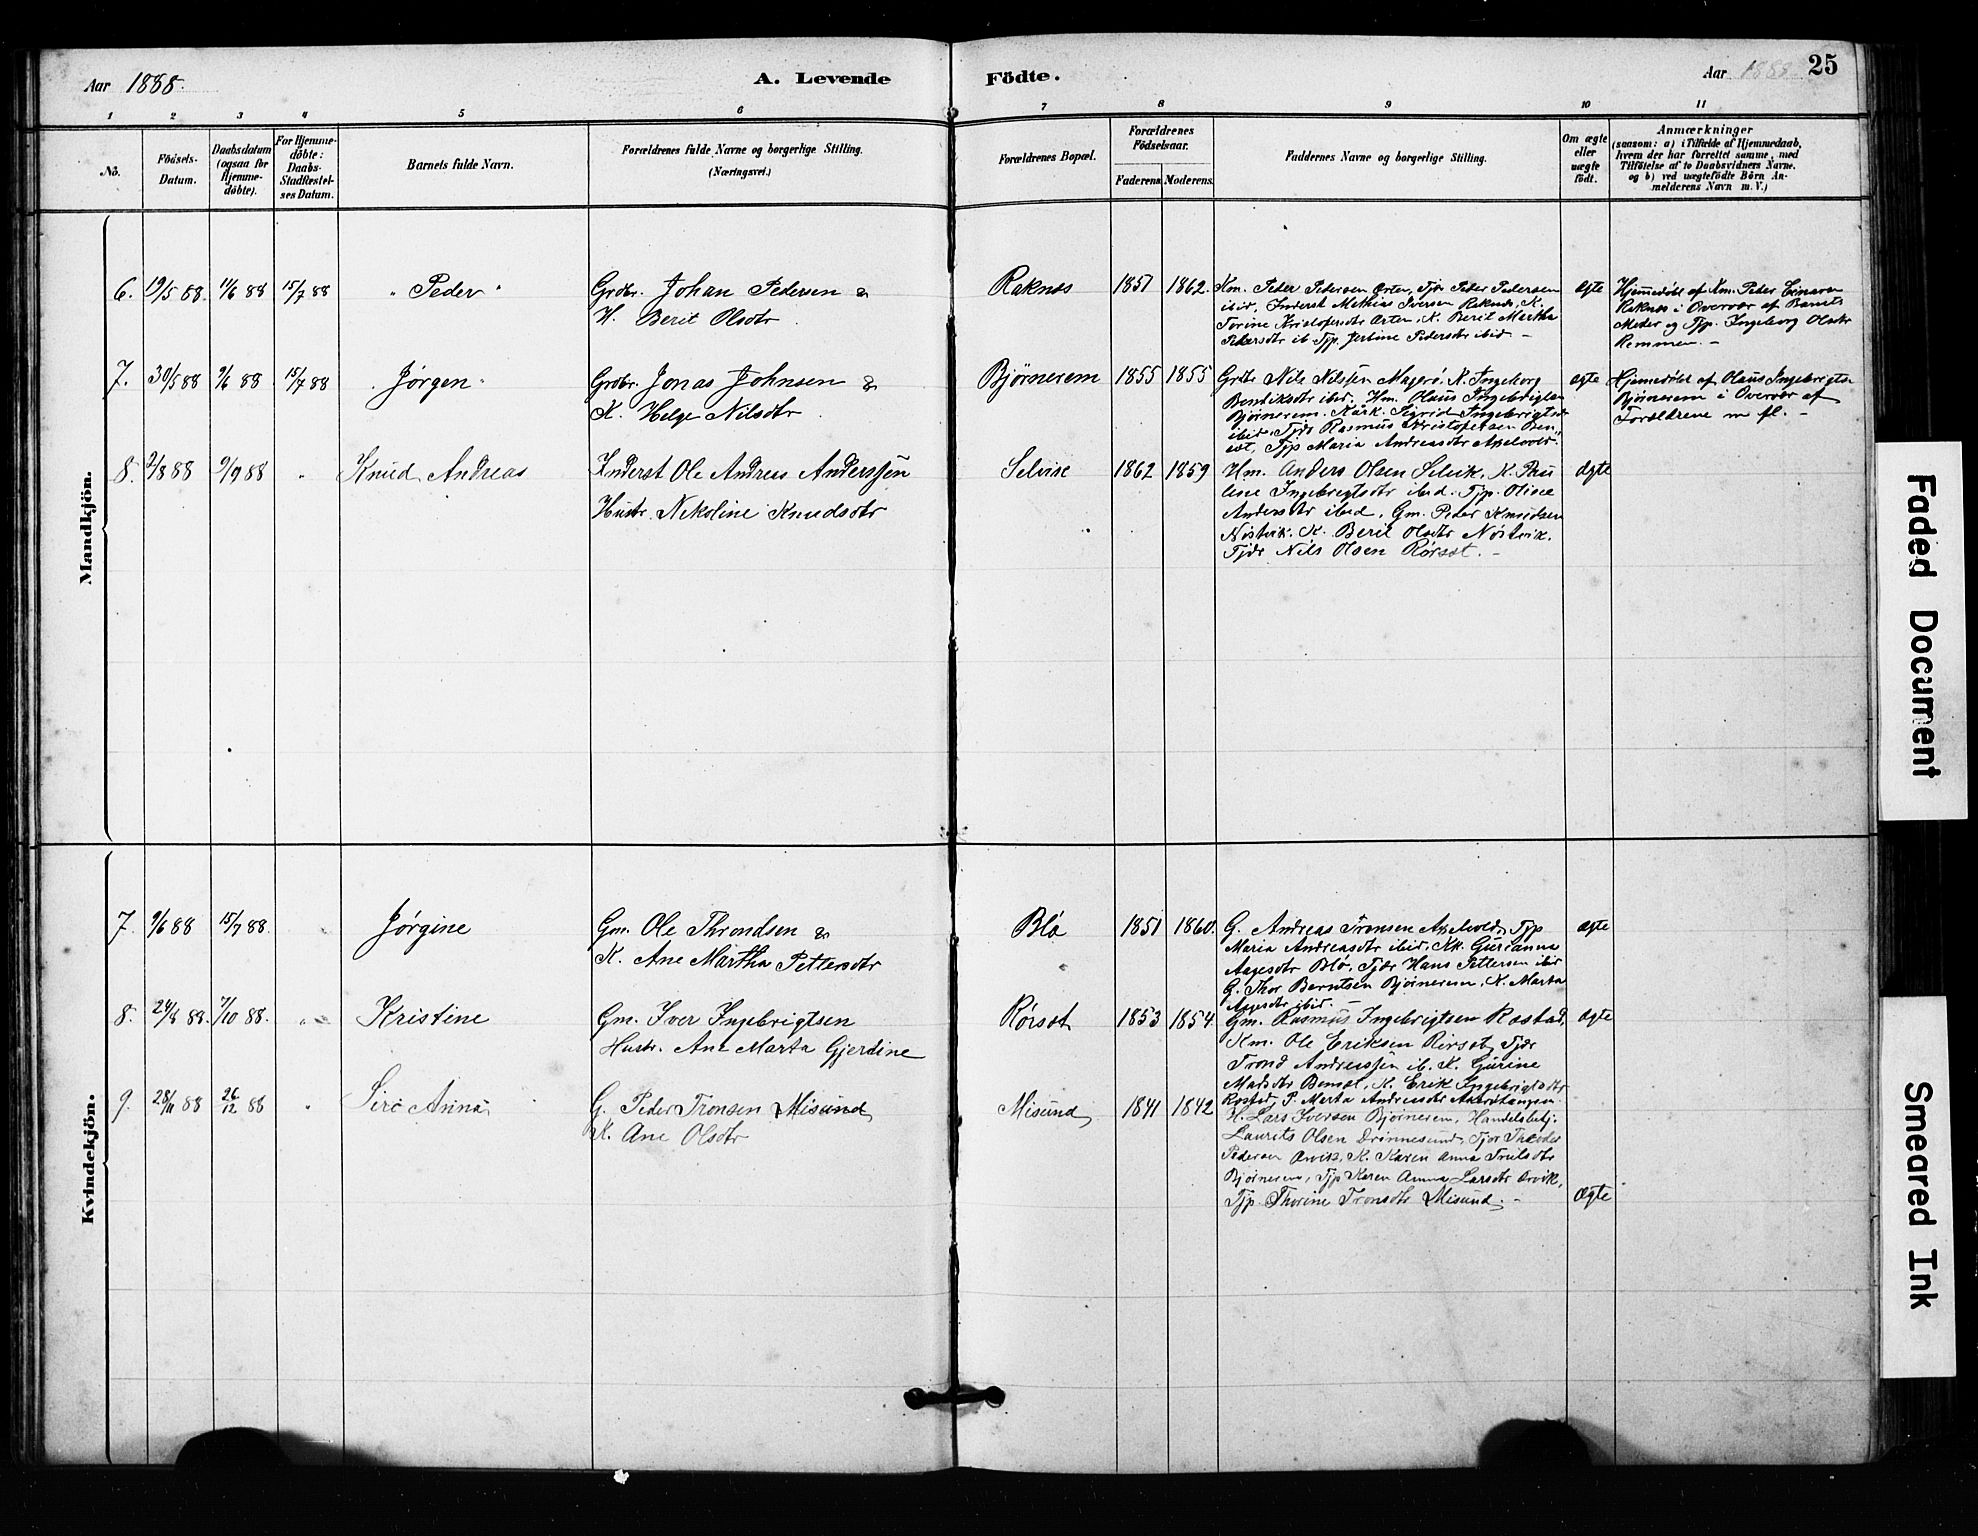 Aar 1888.
A. Levende
Födte.
Aar 1888
25
1 2 3 4 5 6 7 8 9 10 11
No.
Födsels-
Datum.
Daabsdatum
(ogsaa for
Hjemme-
döbte).
For Hjemme-
döbte:
Daabs-
Stadfæstel-
ses Datum.
Barnets fulde Navn.
Forældrenes fulde Navne og borgerlige Stilling.
(Næringsvei.)
Forældrenes Bopæl.
Forældrenes
Födselsaar.
Faderens Moderens.
Faddernes Navne og borgerlige Stilling.
Om ægte
eller
uægte
født.
Anmærkninger
(saasom: a) i Tilfælde af Hjemmedaab,
hvem der har forrettet samme, med
Tilföielse af to Daabsvidners Navne,
og b) ved uægtefödte Börn An-
melderens Navn m.V.)
Mandkjön.
6. 19/5 88. 11/6 88 15/7 88
"Peder"
Grdbr. Johan Pedersen &
H. Berit Olsdtr
Raknæs
1851 1862.
Km. Peder Pedersen Orten, Tjdr Peder Pedersen
ibid, Inderst Mathias Iversen Raknæs, K.
Torine Kristofersdtr Orten, K. Berit Martha
Pedersdtr ib Tjp. Jertine Pedersdtr ibid. –
ægte
Hjemmedøbt af Km. Peder Einarsen
Raknæs i Overvær af Barnets
Moder og Tjp. Ingeborg Olsdtr
Remmen. –
7. 30/5 88 9/6 88 15/7 88
Jørgen
Grdbr. Jonas Johnsen &
K. Helge Nilsdtr
Bjørnerem
1855 1855
Grdbr Nils Nilssen Magerö. K. Ingeborg
Bendiksdtr ibid. Hm. Olaus Ingebrigtsen
Bjørnerem. Kark. Sigrid Ingebrigtsdtr
ibid, Tjdr Rasmus Kristofersen Ben-
set, Tjp Maria Andreasdtr Akselvold.
ægte
Hjemmedøbt af Olaus Ingebrigtsen
Bjørnerem i Overvær af
Forældrene m fl. –
8. 2/8 88 9/9 88 "
Knud Andreas
Inderst Ole Andreas Anderssen
Hustr. Nikoline Knudsdtr
Selvik
1862 1859
Hm. Anders Olsen Selvik, K. Pau
line Ingebrigtsdtr ibid. Tjp. Oline
Andersdtr ibid, Gm. Peder Knudsen
Nøstvik. K. Berit Olsdtr Nøstvik.
Tjdr Nils Olsen Rørset. –
ægte
Kvindekjön.
7. 9/6 88 15/7 88.
Jørgine
Gm. Ole Throndsen &
K. Ane Martha Pettersdtr
Blø
1851 1860.
G. Andreas Tronsen Akselvold, Tjp
Maria Andreasdtr ibid, Kk. Gurianna
Aagesdtr Blø, Tjdr Hans Pettersen ibid
G. Thor Berntsen Bjørnerem, K. Marta
Aagesdtr ibid. –
ægte
8. 24/8 88. 7/10 88.
Kristine
Gm. Iver Ingebrigtsen
Hustr. Ane Marta Gjerdine
Rørset
1853 1854
Gm. Rasmus Ingebrigtsen Rostad,
Km. Ole Eriksen Rørset, Tjdr
Trond Andreassen ib. K. Gurine
Madsdtr Bemset, K. Erik Ingebrigtsdtr
Rostad, P. Marta Andreasdtr
ægte
9. 28/11 88 26/12 88 "
Siri Anna
G. Peder Tronsen Misund
K. Ane Olsdtr
Misund
1841 1842
H. Lars Iversen Bjørnerem, Handelsbetj.
Laurits Olsen Drönnesund, Tjdr Theodor
Pedersen Orvik, K. Karen Anna Trulsdtr
Bjørnerem, Tjp Karen Anna Larsdtr Orvik,
Tjp. Thorine Tronsdtr Misund. –
Ægte
Faded Document
Smeared Ink